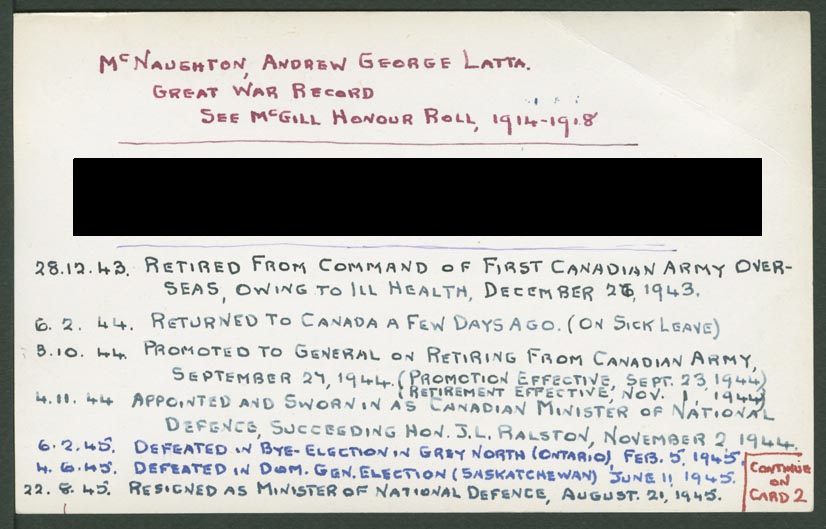 McNAUGHTON, ANDREW GEORGE LATTA.
GREAT WAR RECORD
SEE McGILL HONOUR ROLL, 1914-1918
28.12.43. RETIRED FROM COMMAND OF FIRST CANADIAN ARMY OVER-
SEAS, OWING TO ILL HEALTH, DECEMBER 26, 1943.
6. 2. 44. RETURNED TO CANADA A FEW DAYS AGO. (ON SICK LEAVE)
3.10. 44. PROMOTED TO GENERAL ON RETIRING FROM CANADIAN ARMY,
SEPTEMBER 27, 1944. (PROMOTION EFFECTIVE, SEPT. 23, 1944)
(RETIREMENT EFFECTIVE, NOV. 1, 1944)
4.11. 44 APPOINTED AND SWORN IN AS CANADIAN MINISTER OF NATIONAL
DEFENCE, SUCCEEDING HON. J.L. RALSTON, NOVEMBER 2, 1944.
6.2.45. DEFEATED IN BYE-ELECTION IN GREY NORTH (ONTARIO), FEB. 5, 1945.
4. 6.45. DEFEATED IN DOM. GEN. ELECTION (SASKATCHEWAN) JUNE 11, 1945.
22. 8. 45. RESIGNED AS MINISTER OF NATIONAL DEFENCE, AUGUST. 21, 1945.
CONTINUE
ON
CARD 2